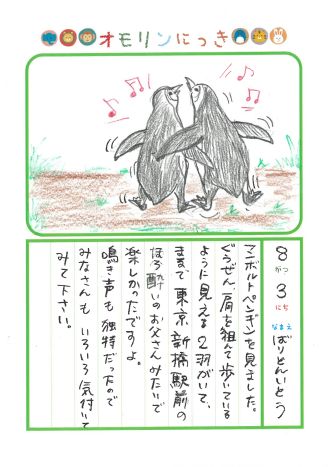 オモリンにっき
8がつ3にち
なまえ ばりとんいとう
フンボルトペンギンを見ました。
ぐうぜん、肩を組んで歩いている
ように見える2羽がいて、
まるで東京新橋駅前の
ほろ酔いのお父さんみたいで
楽しかったですよ。
鳴き声も独特だったので
みなさんもいろいろ気付いて
みて下さい。